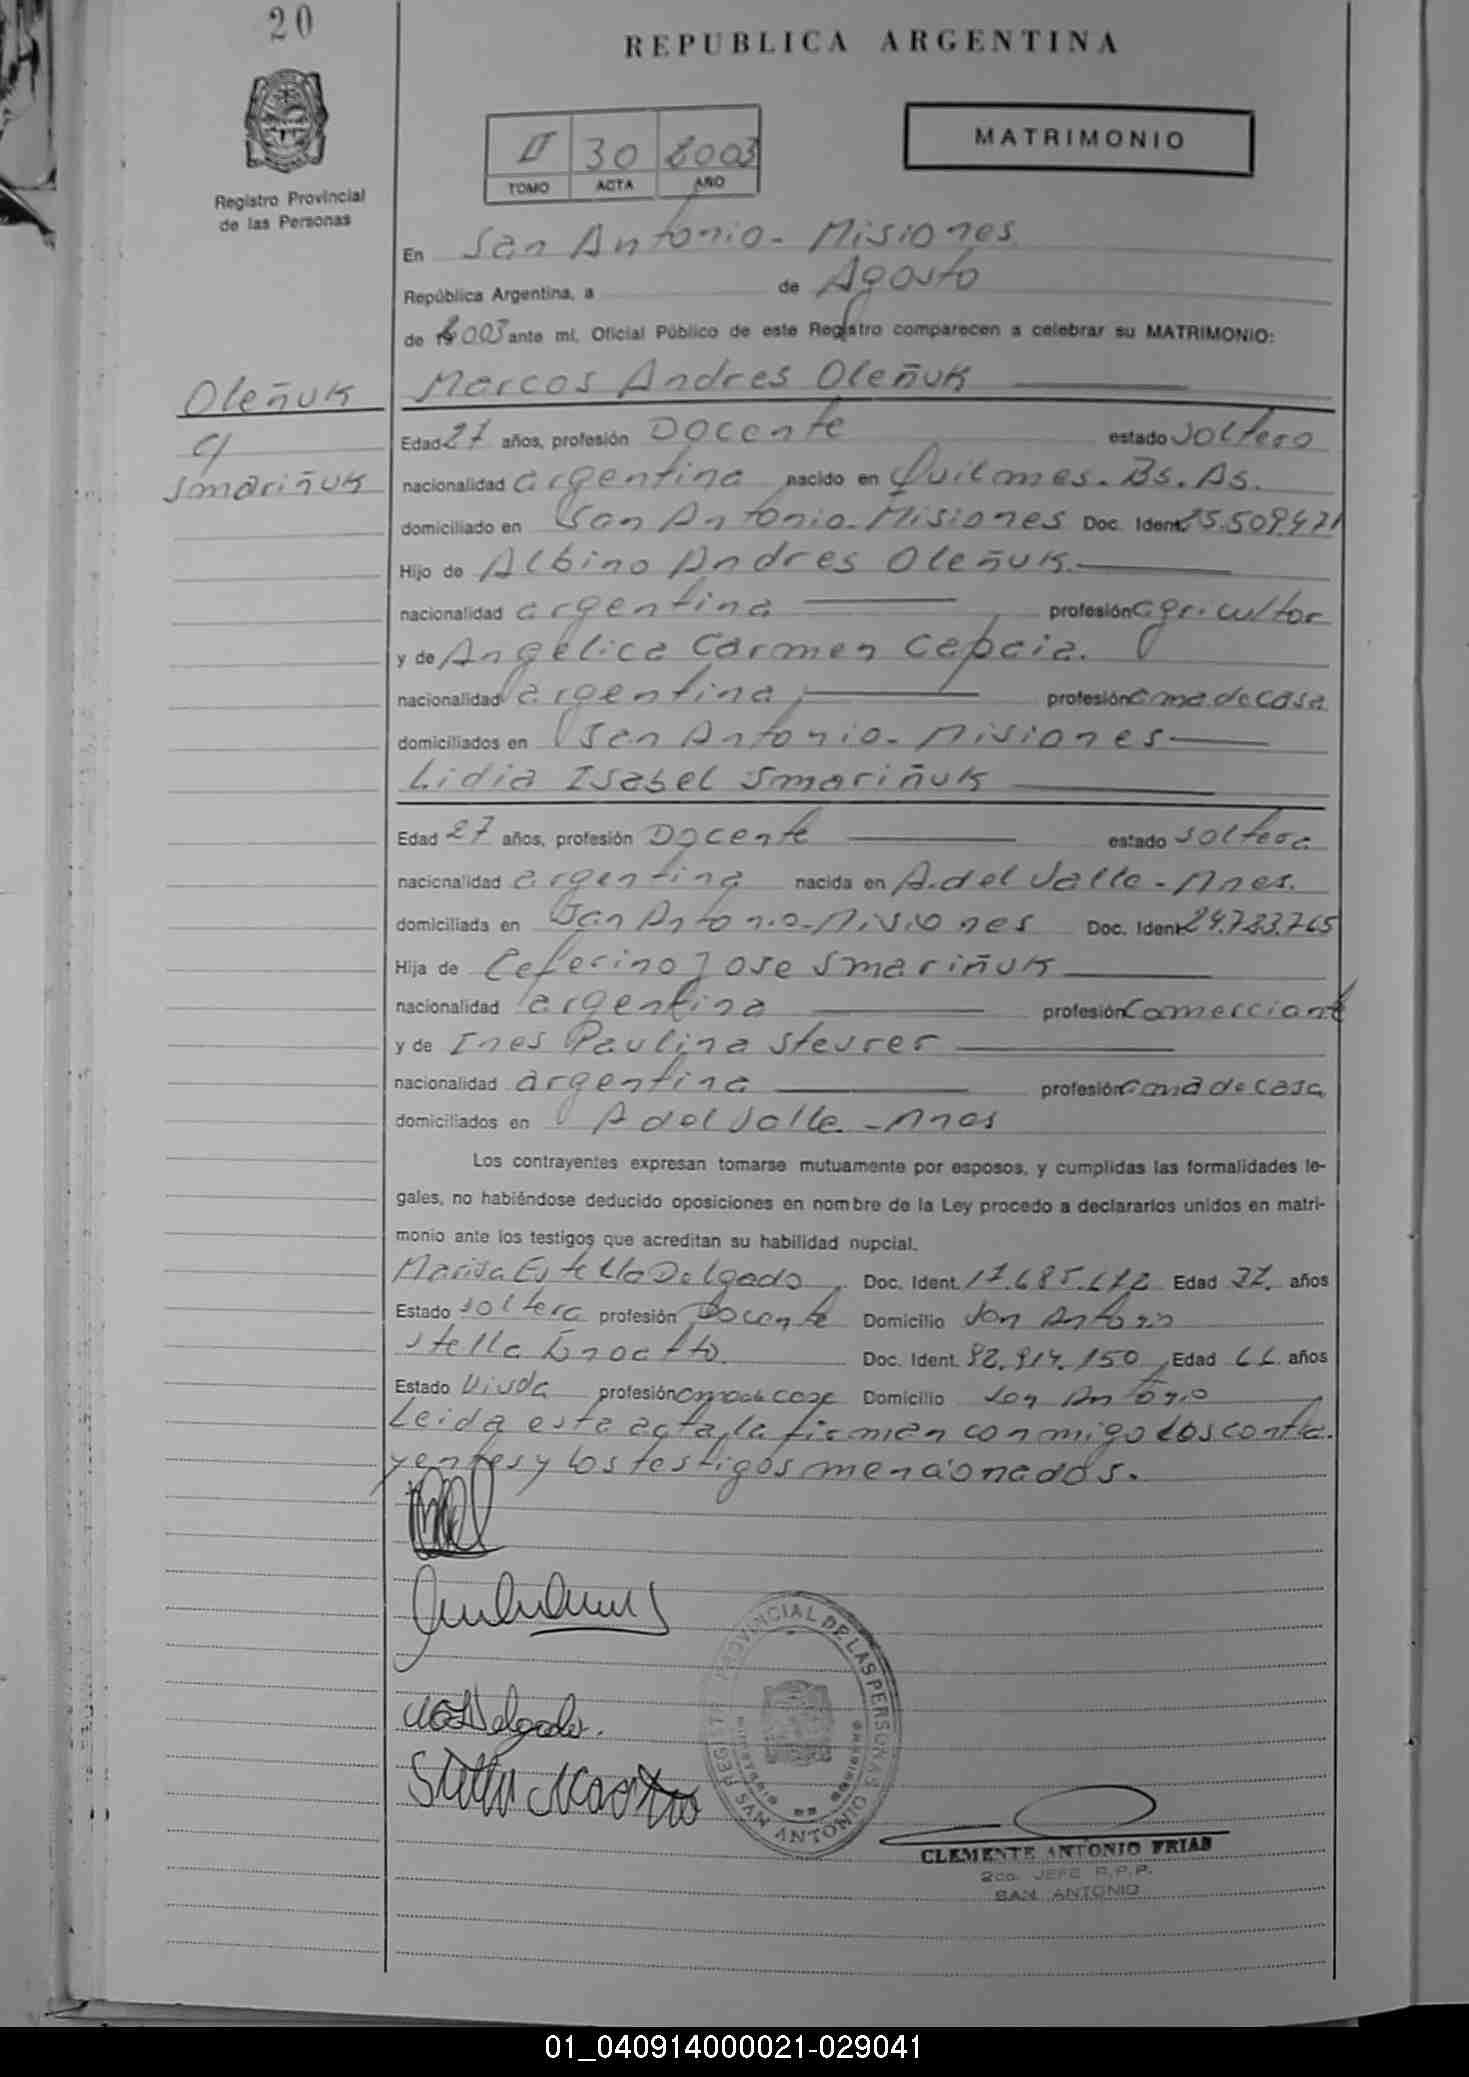 20
REPUBLICA ARGENTINA
MATRIMONIO
II 30 2003
TOMO ACTA AÑO
Registro Provincial
de las Personas
En San Antonio - Misiones
República Argentina, a de Agosto
de 2003 ante mí, Oficial Público de este Registro comparecen a celebrar su MATRIMONIO:
Oleñuk
c/
Smariñuk
Marcos Andres Oleñuk
Edad 27 años, profesión Docente estado soltero
nacionalidad argentina nacido en Quilmes. Bs. As.
domiciliado en San Antonio - Misiones Doc. Ident. 25.509.471
Hijo de Albino Andres Oleñuk.
nacionalidad argentina profesión agricultor
y de Angelica Carmen
nacionalidad argentina profesión ama de casa
domiciliados en San Antonio - Misiones
Lidia Isabel Smariñuk
Edad 27 años, profesión Docente estado soltera
nacionalidad argentina nacida en A. del Valle - Mnes.
domiciliada en San Antonio - Misiones Doc. Ident. 24.783.765
Hija de Ceferino Jose Smariñuk
nacionalidad argentina profesión Comerciante
y de Ines Paulina Steurer
nacionalidad argentina profesión ama de casa
domiciliados en A del Valle - Mnes
Los contrayentes expresan tomarse mutuamente por esposos, y cumplidas las formalidades le-
gales, no habiéndose deducido oposiciones en nombre de la Ley procedo a declararlos unidos en matri-
monio ante los testigos que acreditan su habilidad nupcial.
Marisa Estella Delgado Doc. Ident. 17.685.672 Edad 37 años
Estado soltera profesión Docente Domicilio San Antonio
Stella Doc. Ident. 92.914.150 Edad 66 años
Estado Viuda profesión ama de casa Domicilio San Antonio
Leida esta acta, la firman conmigo los contra
yentes y los testigos mencionados.
Delgado.
Stella
REGISTRO PROVINCIAL DE LAS PERSONAS
SAN ANTONIO
CLEMENTE ANTONIO FRIAS
2do. JEFE R.P.P.
SAN ANTONIO
01_040914000021-029041